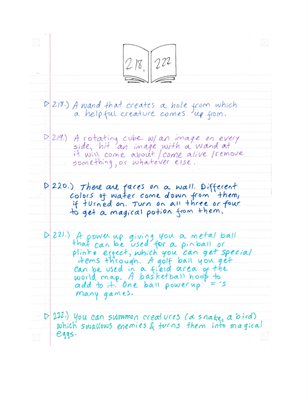 218, 222
▷ 218.) A wand that creates a hole from which
a helpful creature comes up from.
▷ 219.) A rotating cube w/an image on every
side, hit an image with a wand at
it will come about/come alive/remove
something, or whatever else.
▷ 220.) There are faces on a wall. Different
colors of water come down from them,
if turned on. Turn on all three or four
to get a magical potion from them.
▷ 221.) A power up giving you a metal ball
that can be used for a pinball or
plinko effect, which you can get special
items through. A golf ball you get
can be used in a field area of the
world map. A basketball hoop to
add to it. One ball powerup = 's
many games.
▷ 222.) You can summon creatures (a snake, a bird)
which swallows enemies & turns them into magical
eggs.